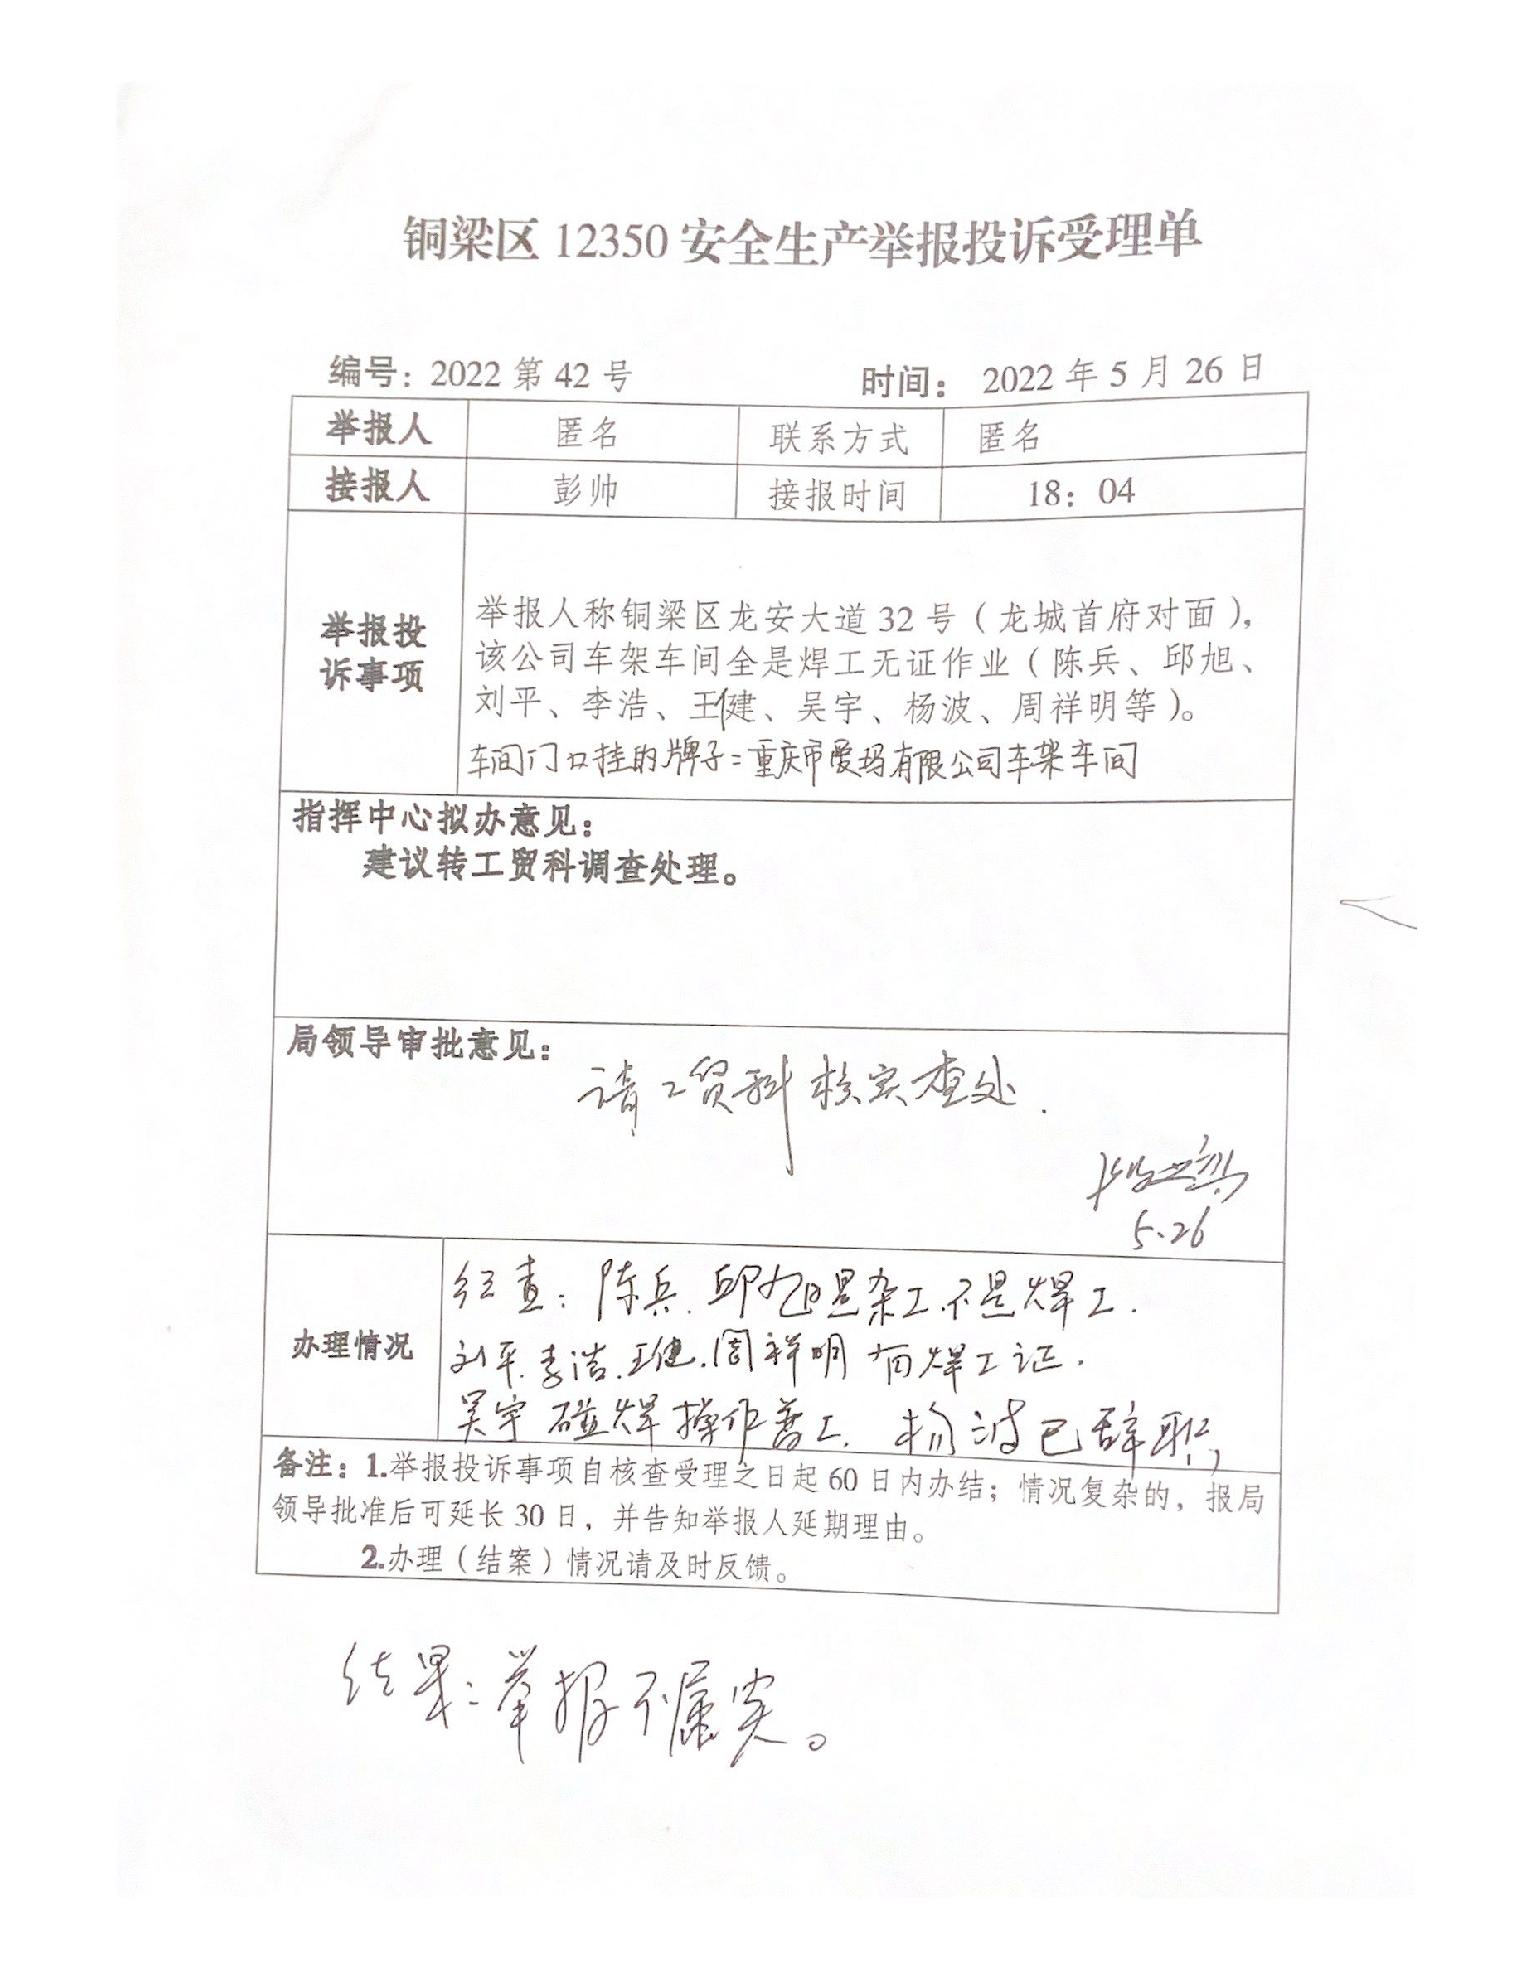 铜梁区 12350 安全生产举报投诉受理单
编号：2022 第 42 号 时间： 2022 年 5 月 26 日
举报人 匿名 联系方式 匿名
接报人 彭帅 接报时间 18：04
举报投诉事项
举报人称铜梁区龙安大道 32 号（龙城首府对面），
该公司车架车间全是焊工无证作业（陈兵、邱旭、
刘平、李浩、王健、吴宇、杨波、周祥明等）。
车间门口挂的牌子：重庆市爱玛有限公司车架车间
指挥中心拟办意见：
建议转工贸科调查处理。
局领导审批意见：
请工贸科核实查处.
5.26
办理情况
经查：陈兵、邱旭是杂工、不是焊工.
刘平、李浩、王健、周祥明有焊工证.
吴宇碰焊操作普工、杨波已辞职，
备注：1.举报投诉事项自核查受理之日起 60 日内办结；情况复杂的，报局
领导批准后可延长 30 日，并告知举报人延期理由。
2.办理（结案）情况请及时反馈。
结果：举报不属实。